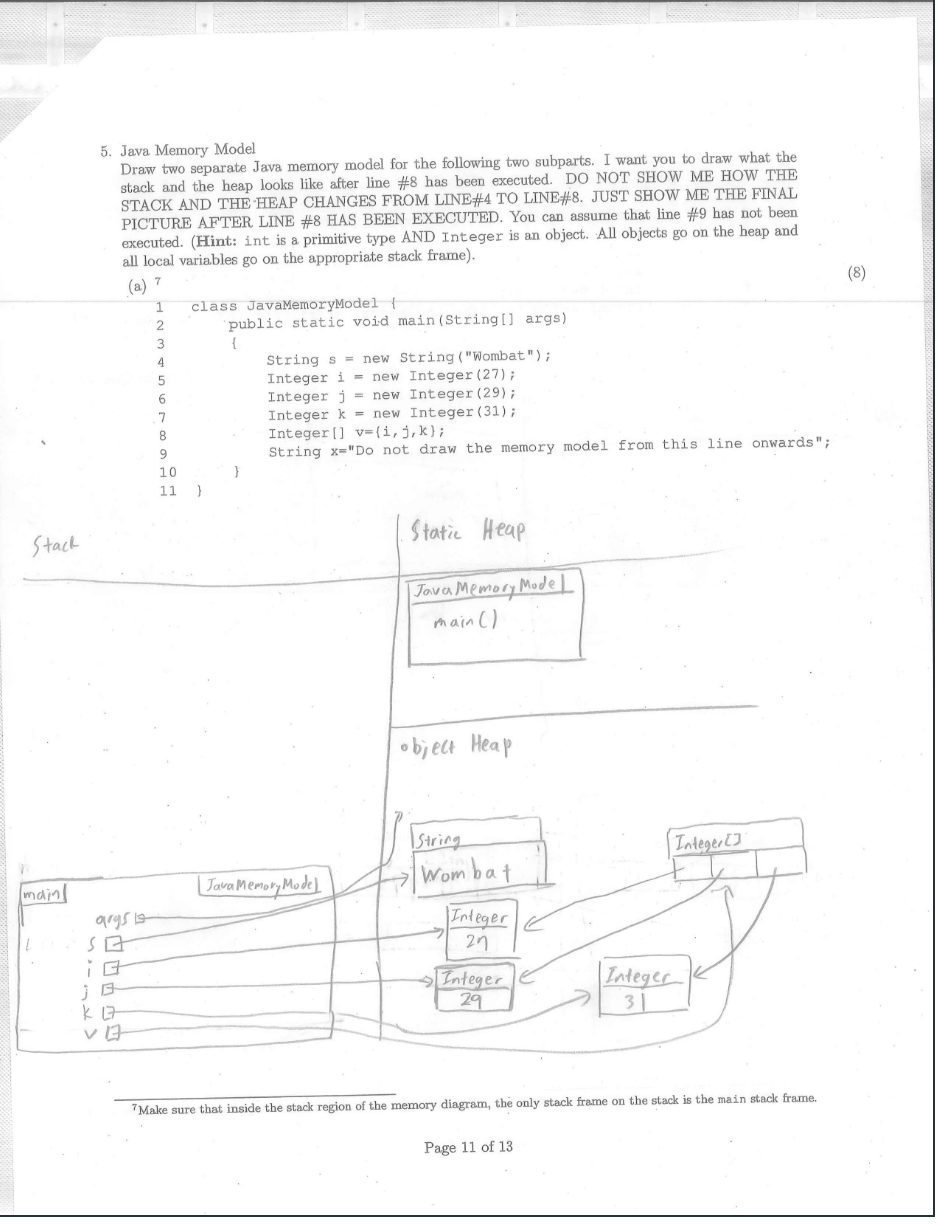 5. Java Memory Model
Draw two separate Java memory model for the following two subparts. I want you to draw what the
stack and the heap looks like after line #8 has been executed. DO NOT SHOW ME HOW THE
STACK AND THE HEAP CHANGES FROM LINE#4 TO LINE#8. JUST SHOW ME THE FINAL
PICTURE AFTER LINE #8 HAS BEEN EXECUTED. You can assume that line #9 has not been
executed. (Hint: int is a primitive type AND Integer is an object. All objects go on the heap and
all local variables go on the appropriate stack frame).
(a) 7
(8)
1 class JavaMemoryModel {
2 public static void main(String[] args)
3 {
4 String s = new String("Wombat");
5 Integer i = new Integer(27);
6 Integer j = new Integer(29);
7 Integer k = new Integer(31);
8 Integer[] v={i,j,k};
9 String x="Do not draw the memory model from this line onwards";
10 }
11 }
Stack
Static Heap
JavaMemoryModel
main()
object Heap
String
Wombat
Integer[]
main
JavaMemoryModel
args
s
i
j
k
v
Integer
27
Integer
29
Integer
31
7Make sure that inside the stack region of the memory diagram, the only stack frame on the stack is the main stack frame.
Page 11 of 13